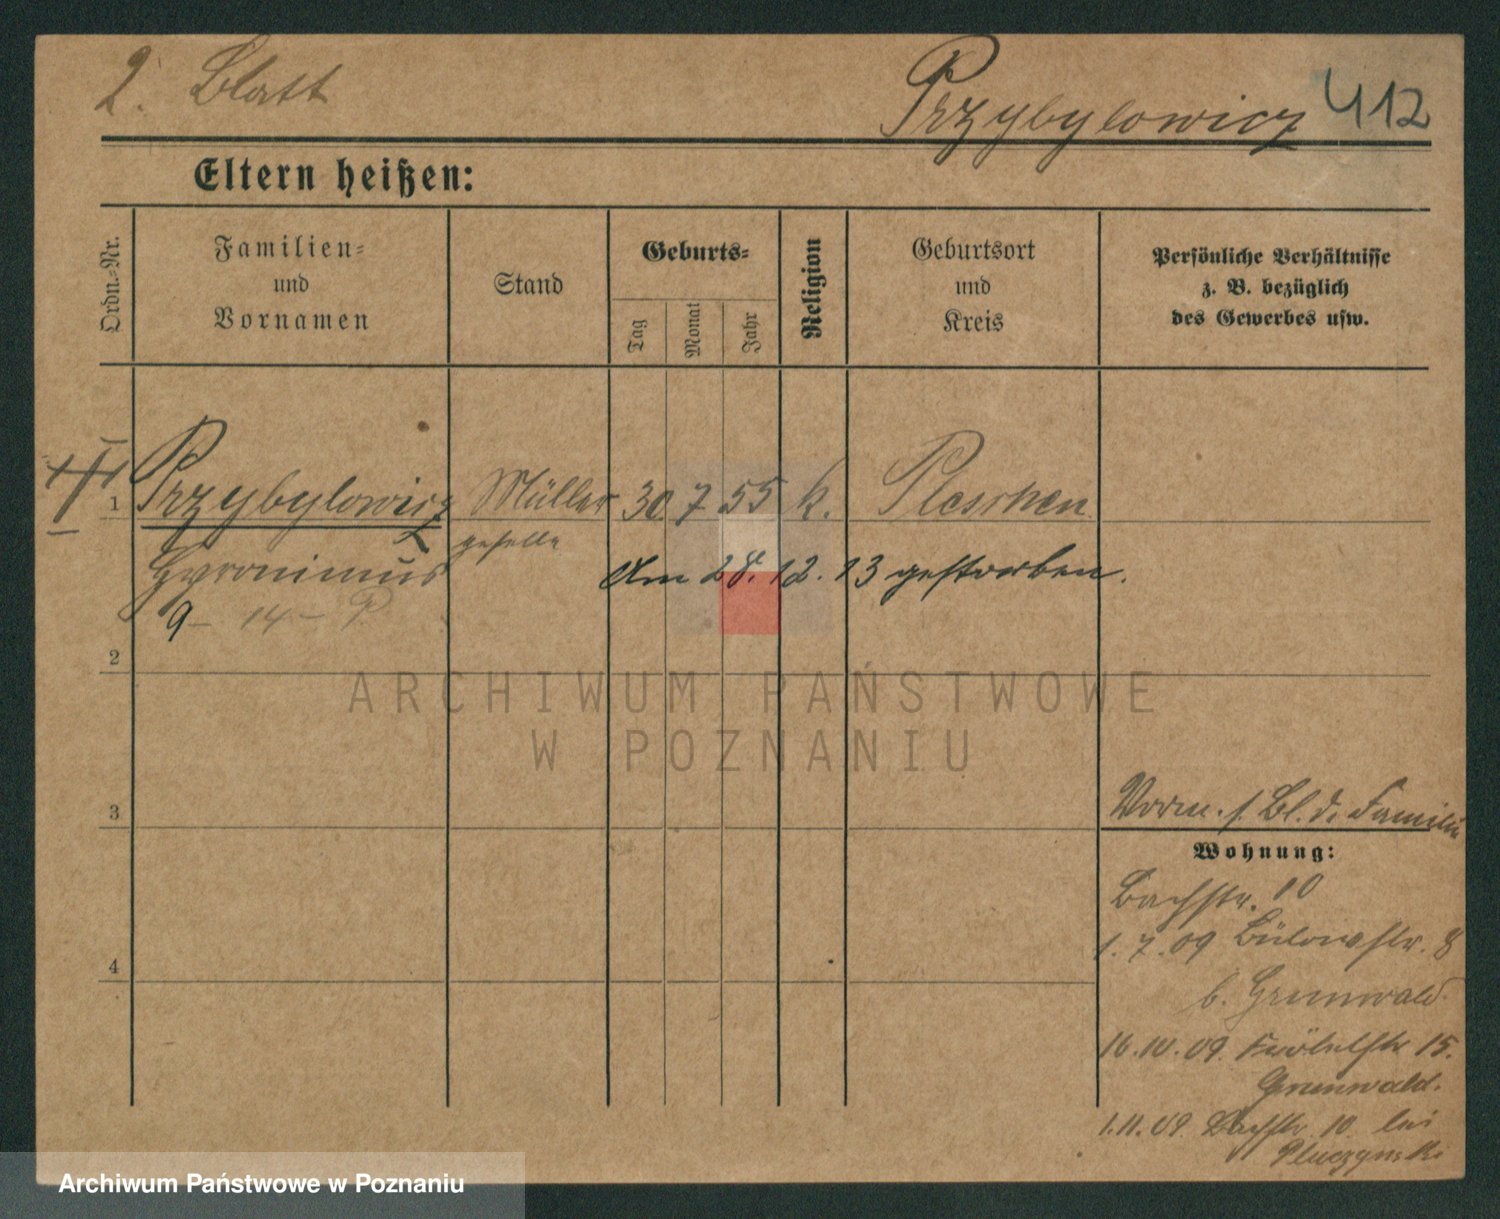 2. Blatt
Przybylowicz 412
Eltern heißen:
Ordn.-Nr.
Familien-
und
Vornamen
Stand
Geburts-
Tag
Monat
Jahr
Religion
Geburtsort
und
Kreis
Persönliche Verhältnisse
z. B. bezüglich
des Gewerbes usw.
1 Przybylowicz Müller 30 7 55 k. Pleschen
geselle
Hyronimus
Am 28.12.13 gestorben.
9 – 14 – P
2
ARCHIWUM PAŃSTWOWE
W POZNANIU
3
Vorm. s. Bl. d. Familie
Wohnung:
Bachstr. 10
1.7.09 Bülowstr. 8
b. Grunwald
4
16.10.09. Fröbelstr 15.
Grunwald.
1.11.09. Bachstr 10 bei
Pluczynski
Archiwum Państwowe w Poznaniu